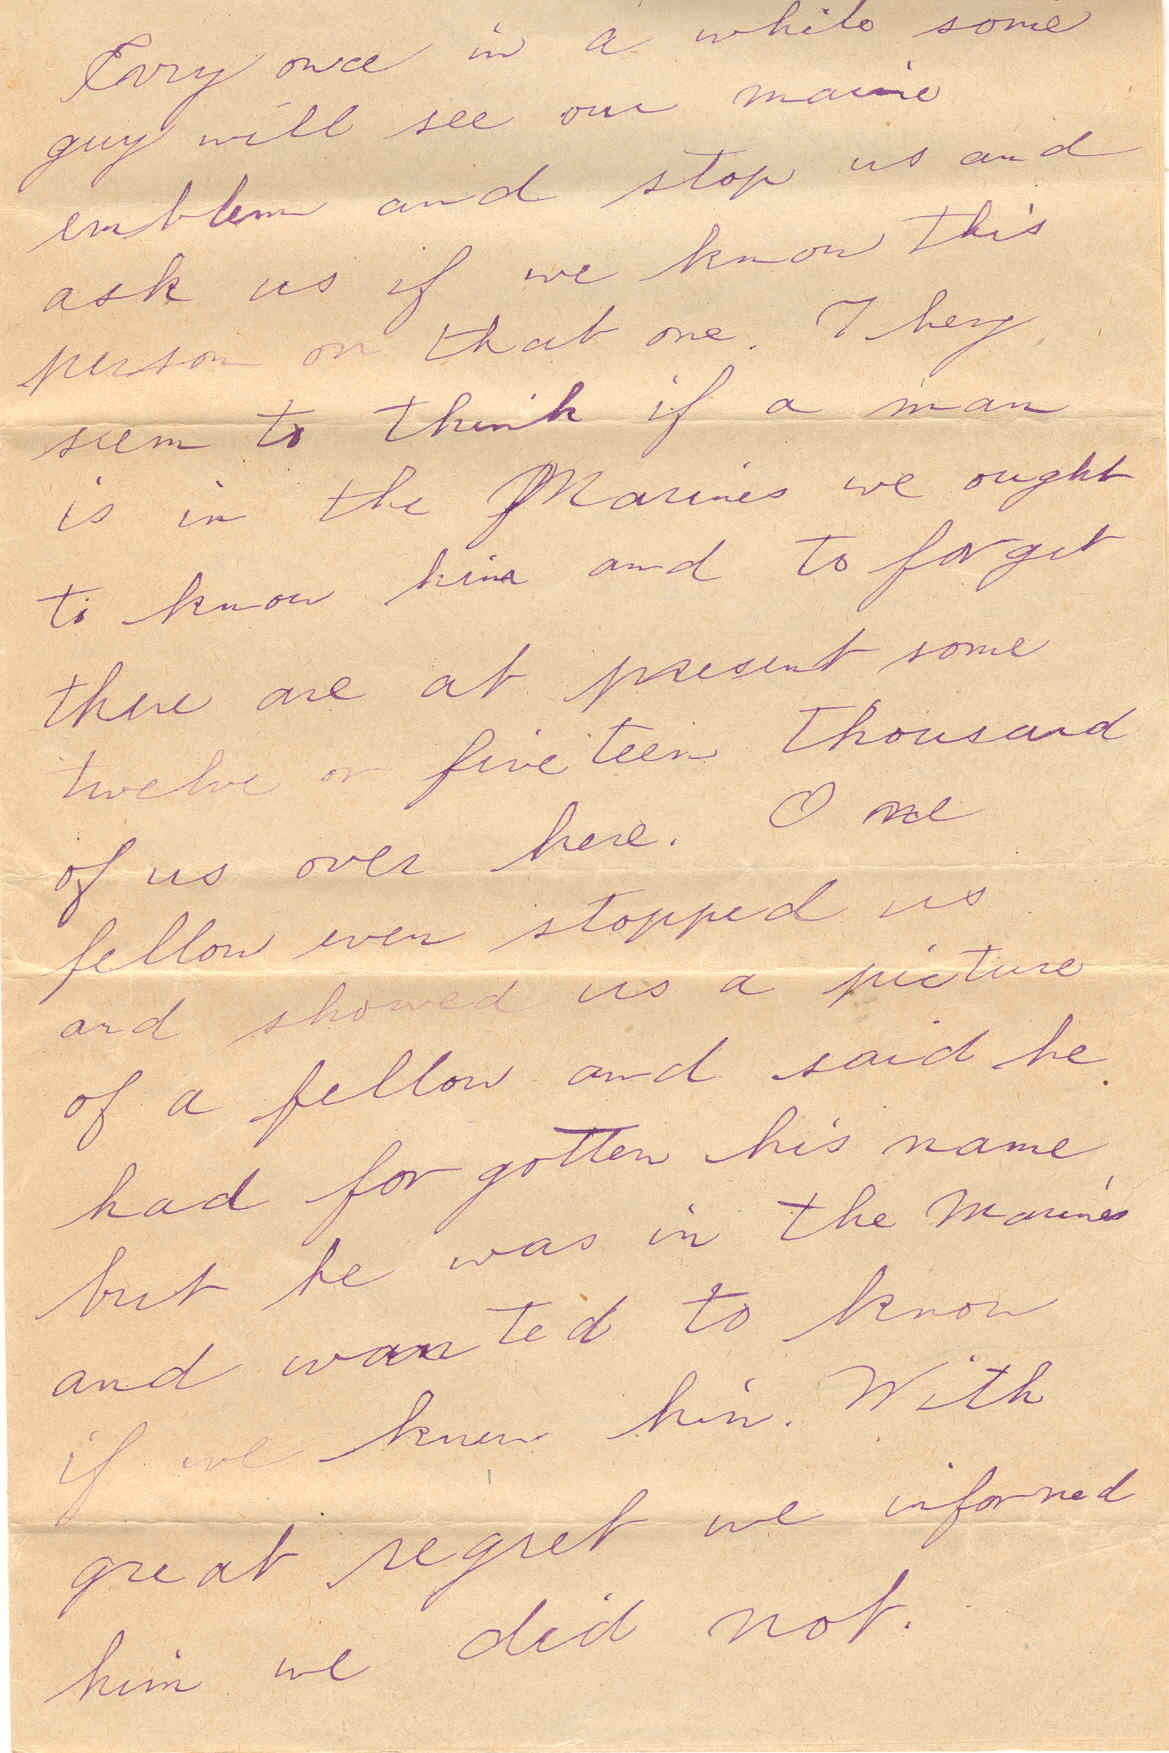 Evry once in a while some
guy will see our maine
emblem and stop us and
ask us if we know this
person or that one. They
seem to think if a man
is in the Marines we ought
to know him and to forget
there are at present some
twelve or fiveteen thousand
of us over here. One
fellow even stopped us
and showed us a picture
of a fellow and said he
had forgotten his name
but he was in the Marines
and wanted to know
if we knew him. With
great regret we informed
him we did not.